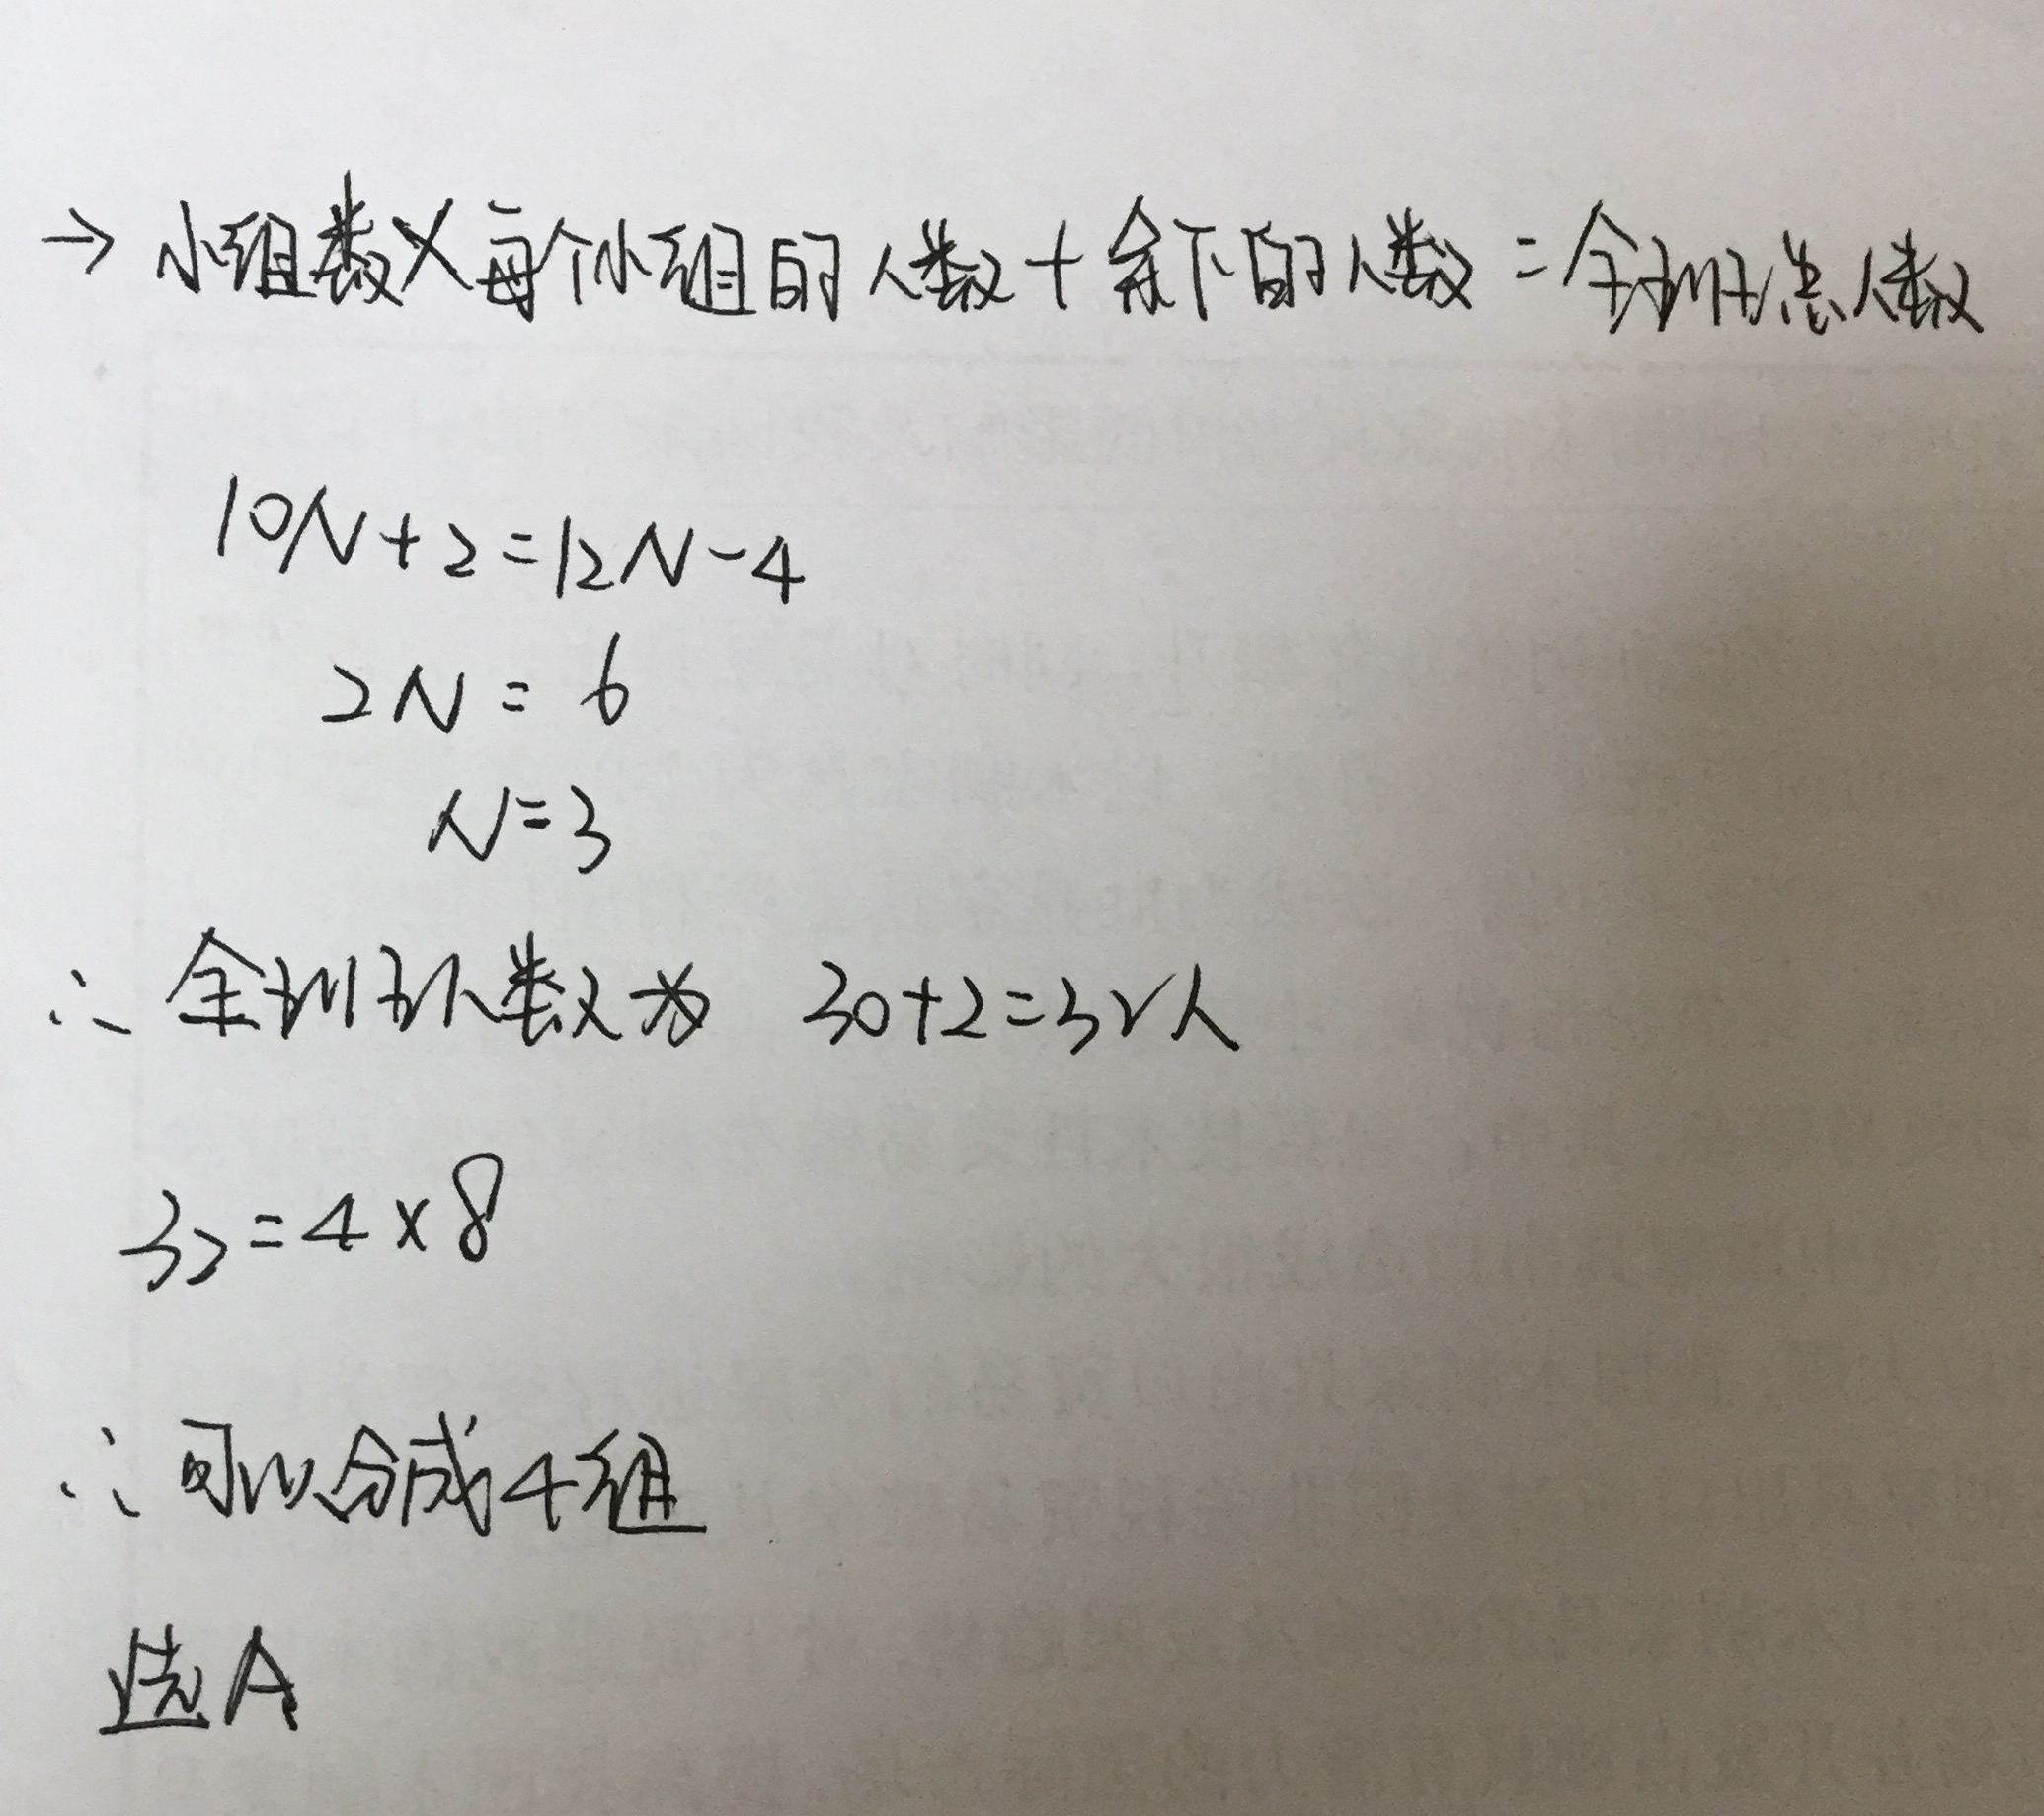 → 小组数×每个小组的人数+余下的人数=全班总人数
10N+2=12N-4
2N=6
N=3
∴ 全班人数为 30+2=32人
32=4×8
∴ 可以分成4组
选A